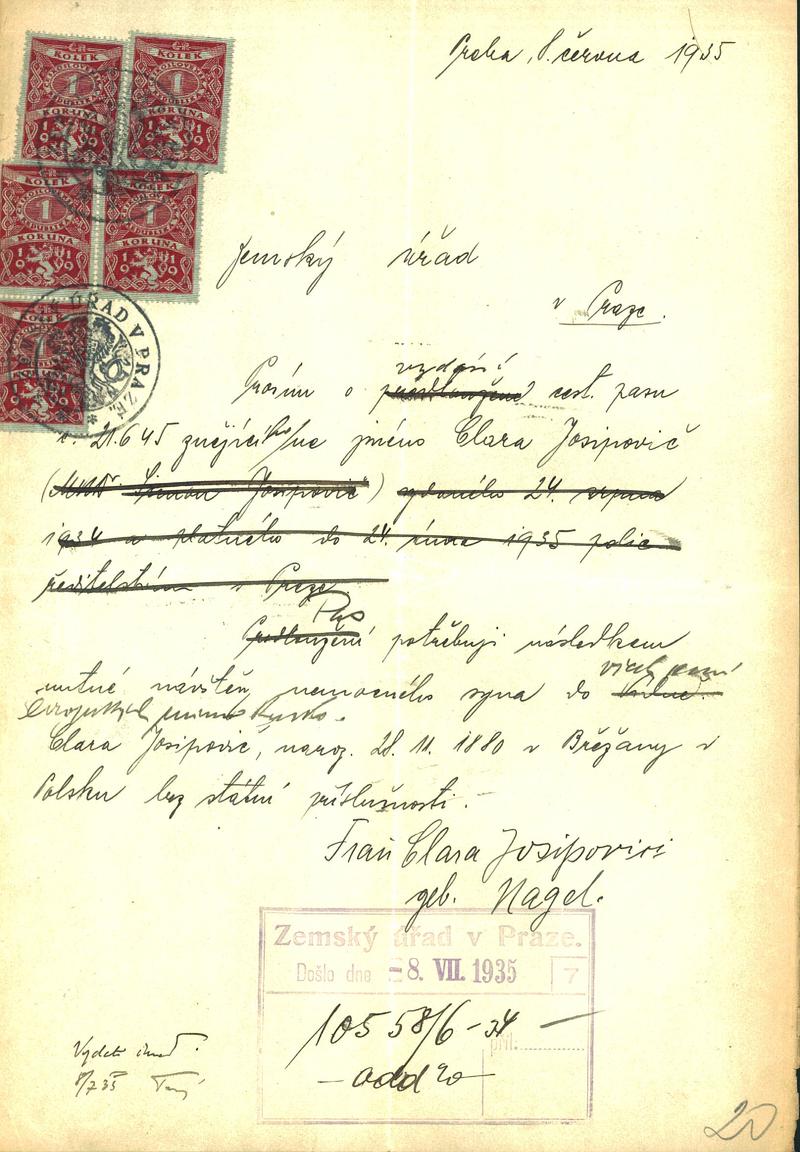 Praha, 8. června 1935
KOLEK
ČESKOSLOVENSKÁ
REPUBLIKA
1
KORUNA
1919
KOLEK
1
KORUNA
1919
KOLEK
1
KORUNA
1919
KOLEK
1
KORUNA
1919
ÚŘAD V PRAZE
Zemský úřad
v Praze.
vydání
Prosím o prodloužení cest. pasu
č. 21.645 znějícího na jméno Clara Josipovič
(MUDr Simon Josipovič) vydaného 24. srpna
1934 a platného do 24. února 1935 polic.
ředitelstvím v Praze
Pas
Prodloužení potřebuji následkem
všech zemí
nutné návštěvy nemocného syna do
Evropských mimo Rusko.
Clara Josipovič, naroz. 28. 11. 1880 v Břěžany v
Polsku bez státní příslušnosti.
Frau Clara Josipovici
geb. Nagel.
Zemský úřad v Praze.
Došlo dne -8. VII. 1935 7
10558/6-34
příl.
- add 20 -
Vydati ihned.
8/7 35
20